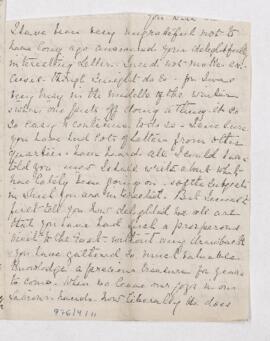 You will
I have been very ungrateful not to
have long ago answered your delightful
interesting letter. I need not make ex-
cuses though I might do so - for I was
very busy in the middle of the winter
when one puts off doing a thing it is so
so easy to continue to do so - I am sure
you have had lots of letters from other
quarters & have heard all I could have
told you - now I shall write about what
has lately been going on - & of the subjects
in which you are interested. But I must
first tell you how delighted we all are
that you have had such a prosperous
visit to the East - without any drawback
you have gathered so much valuable
knowledge a precious treasure for years
to come. When we leave our joys in our
Father's hands how liberally He does
936/4/11